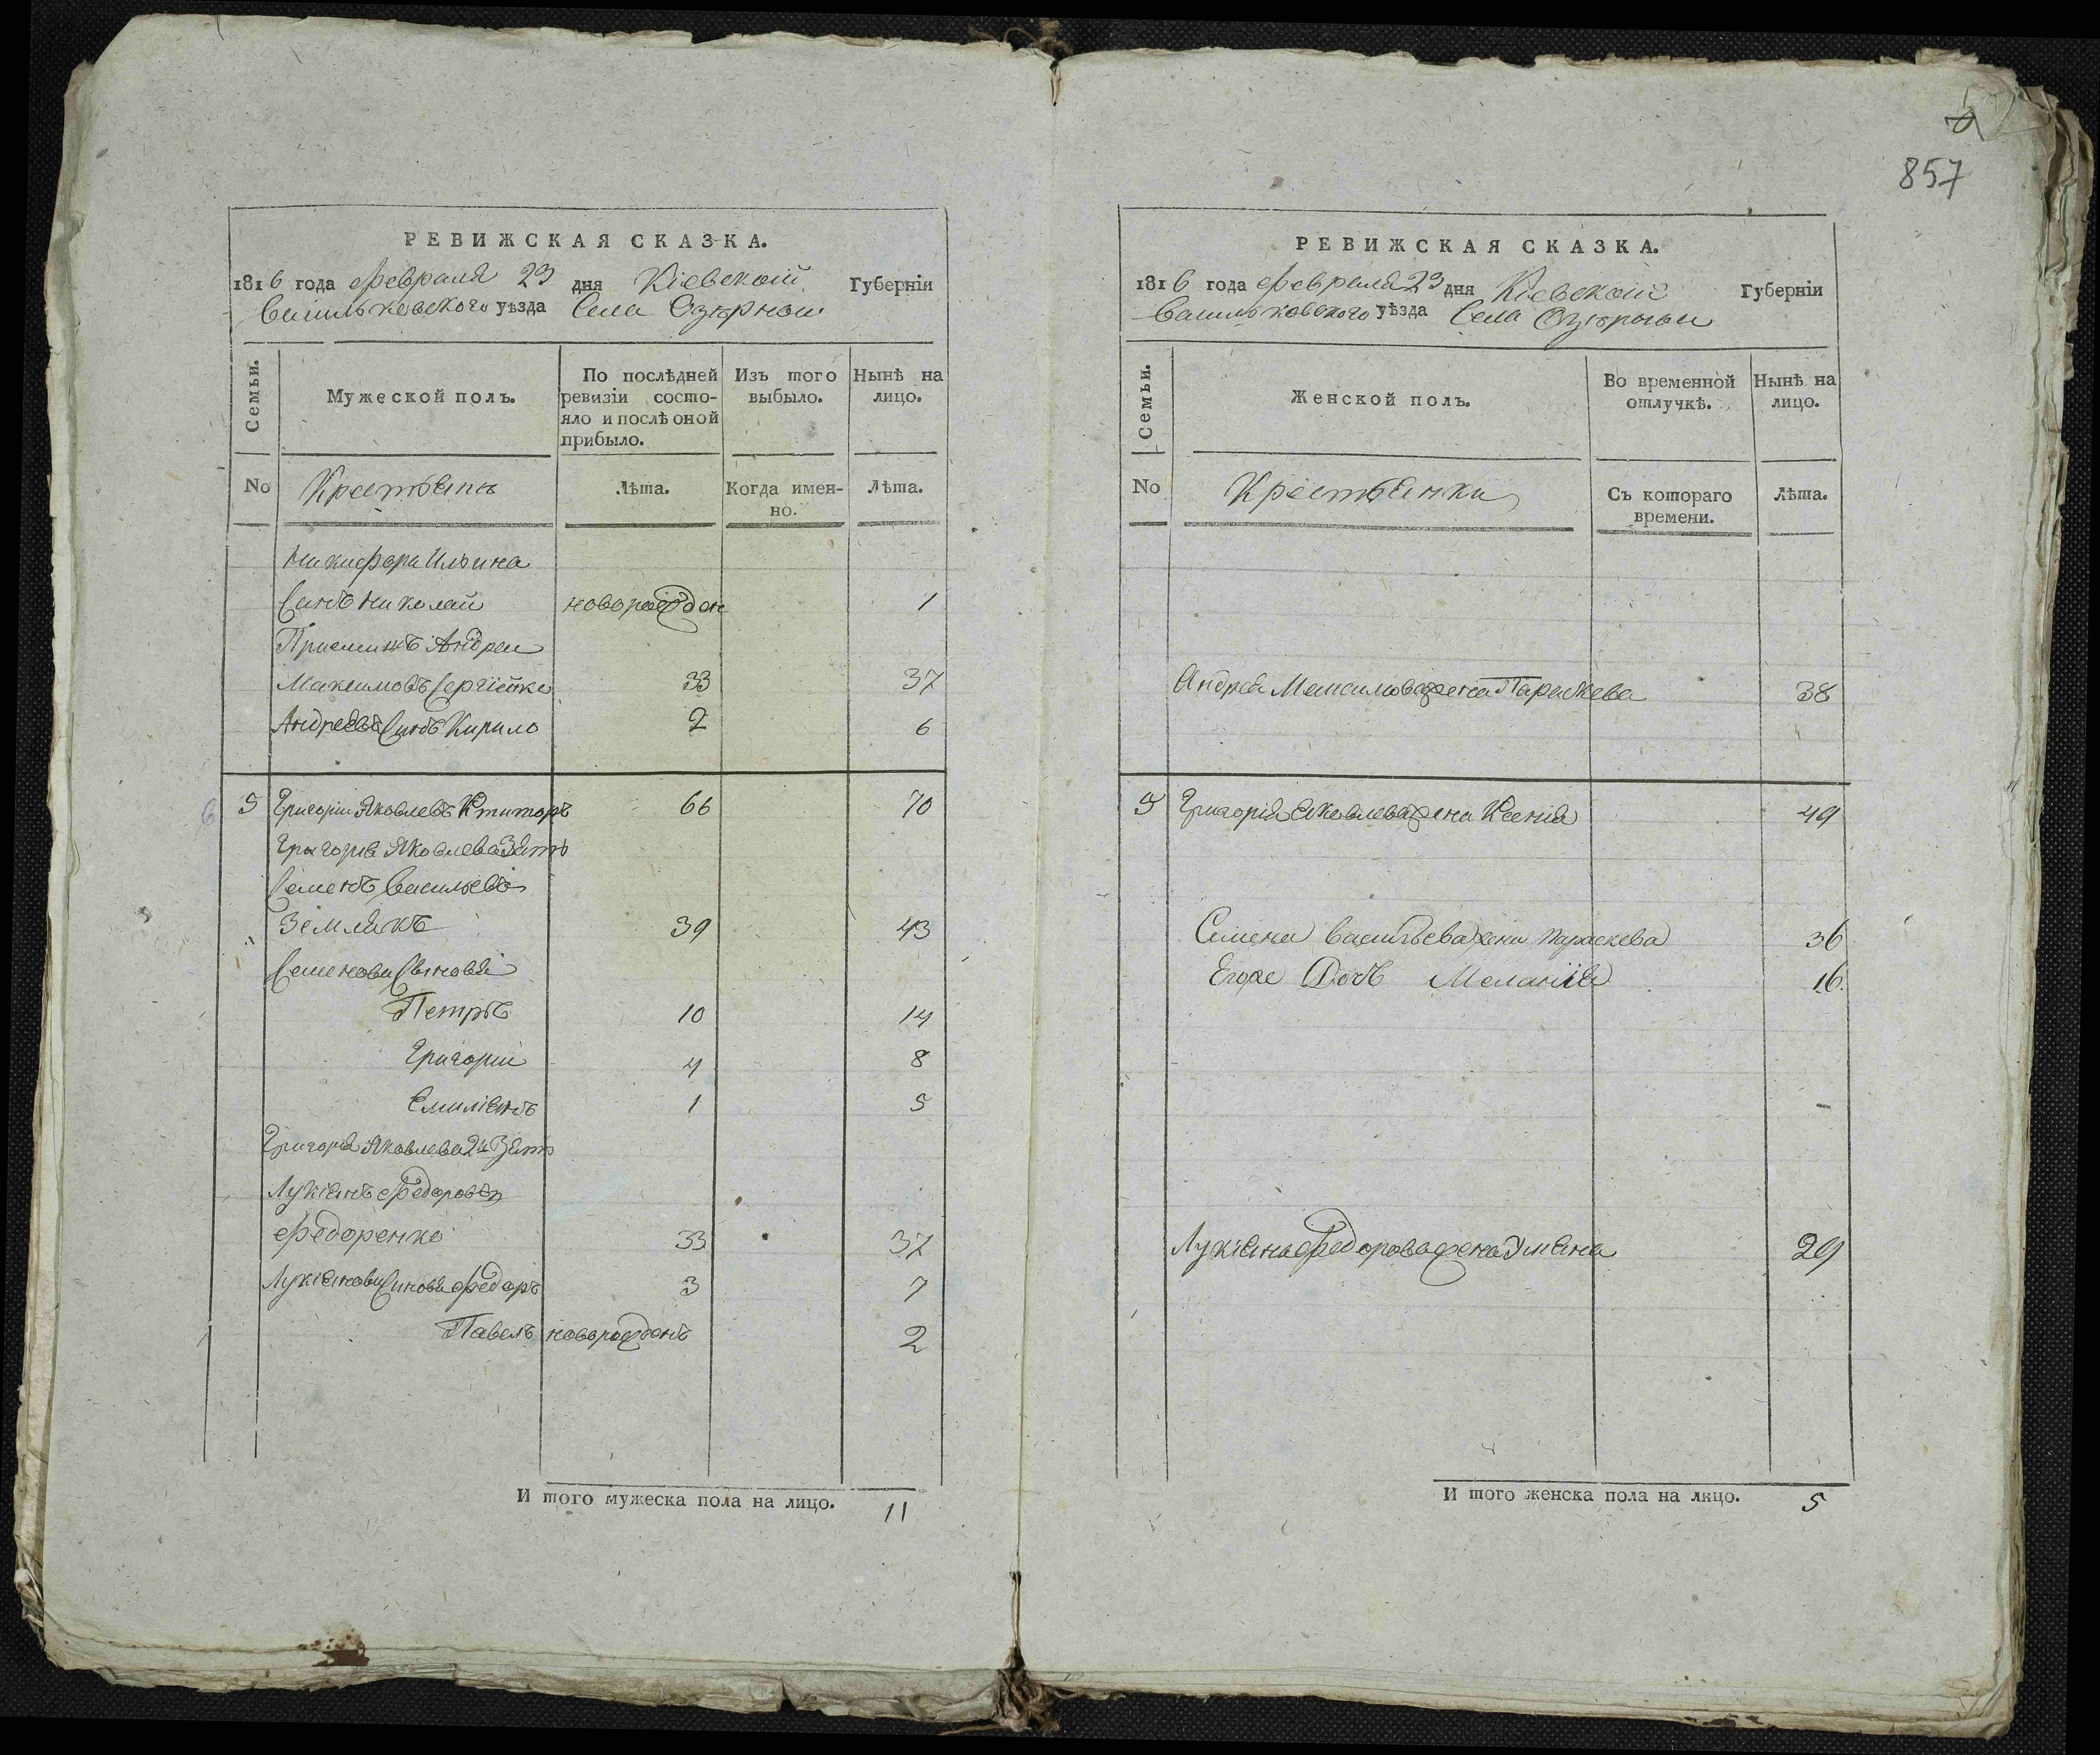 857
РЕВИЖСКАЯ СКАЗКА.
1816 года февраля 23 дня Кіевской Губерніи
Васильковского уѣзда Села Озѣрнои
Семьи.
Мужеской полъ.
По послѣдней ревизіи состо-
яло и послѣ оной
прибыло.
Изъ того выбыло.
Нынѣ на лицо.
No Крестьяны Лѣта. Когда имен-
но. Лѣта.
Никифора Ильина
Синъ Николай новорожден 1
Приемишъ Андреи
Максимовъ Сергіенко 33 37
Андреевъ Синъ Кирило 2 6
5 Григории Яковлевъ Ктиторъ 66 70
Григория Яковлева Зять
Семенъ Васильевъ
Землякъ 39 43
Семенови Сыновья
Петръ 10 14
Григории 4 8
Емиліянъ 1 5
Григорія Яковлева 2й Зять
Лукіянъ Федоровъ
Федоренко 33 37
Лукіянови Синовя Федоръ 3 7
Павелъ новорожденъ 2
И того мужеска пола на лицо. 11
РЕВИЖСКАЯ СКАЗКА.
1816 года февраля 23 дня Кіевской Губерніи
Васильковского уѣзда Села Озѣрнои
Семьи.
Женской полъ.
Во временной отлучкѣ.
Нынѣ на лицо.
No Крестьянки Съ котораго
времени. Лѣта.
Андрея Максимова жена Парасѣева 38
5 Григорія Яковлева жена Ксенія 49
Семена Васильева жена Параскева 36
Егоже Дочь Меланія 16.
Лукіяна Федорова жена Уліяна 29
И того женска пола на лицо. 5